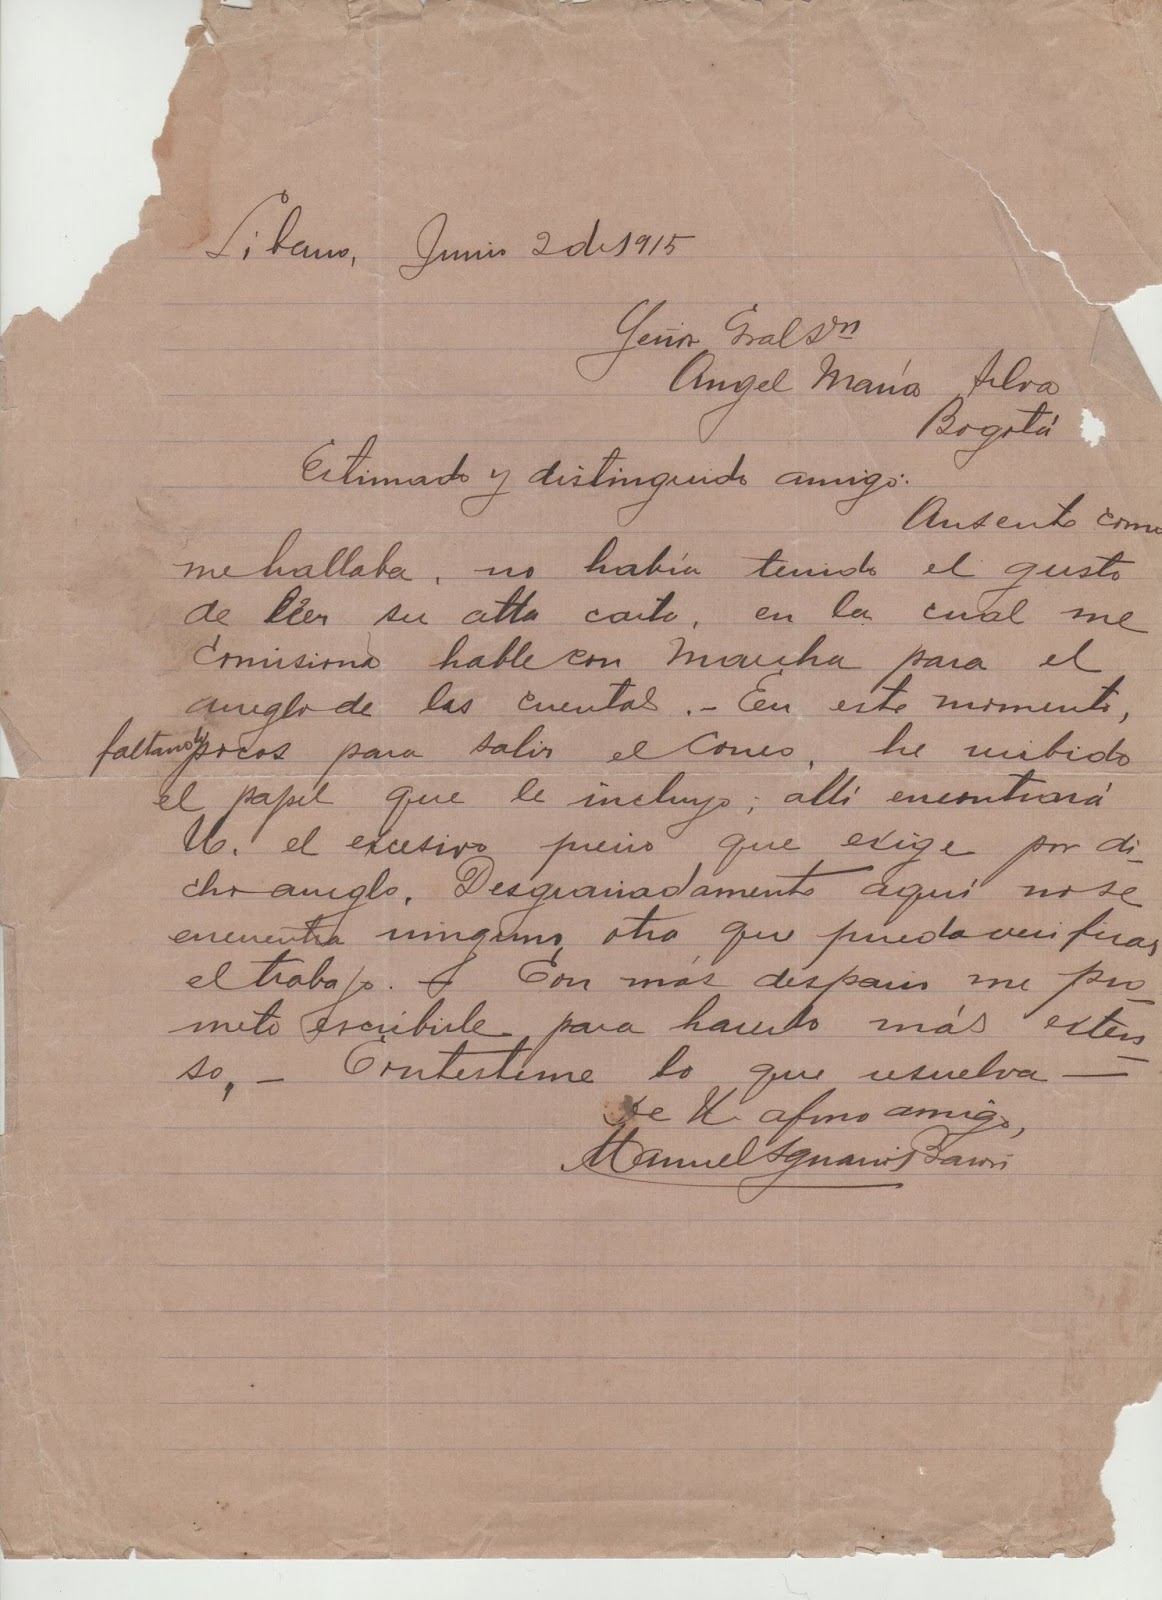 Líbano, Junio 2 de 1915
Señor Gral Dn
Angel María Silva
Bogotá
Estimado y distinguido amigo:
Ausente como
me hallaba, no había tenido el gusto
de leer su atta carta, en la cual me
comisiona hable con Marcha para el
arreglo de las cuentas. - En este momento,
faltando pocos para salir el correo, he recibido
el papel que le incluyo; allí encontrará
U. el excesivo precio que exige por di-
cho arreglo. Desgraciadamente aquí no se
encuentra ninguno otro que pueda verificar
el trabajo. Con más despacio me pro-
meto escribirle para hacerlo más exten-
so, - Contésteme lo que resuelva -
de U. afmo amigo,
Manuel Ignacio